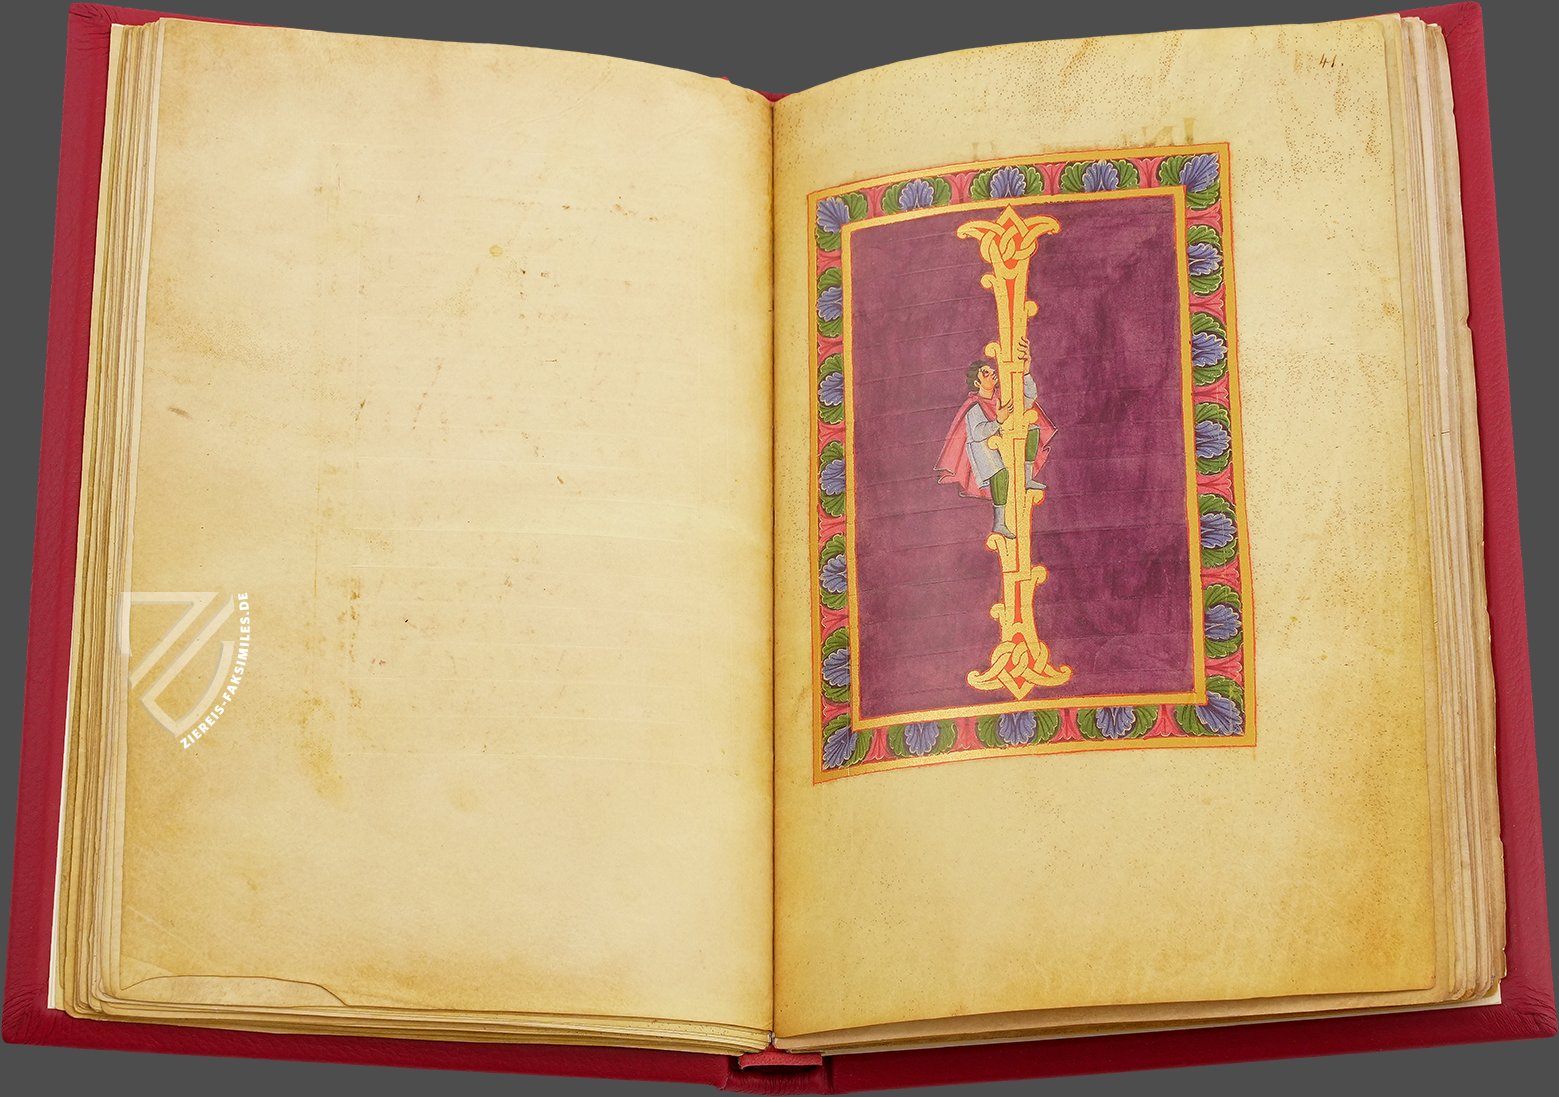 41.
I
ZIEREIS-FAKSIMILES.DE